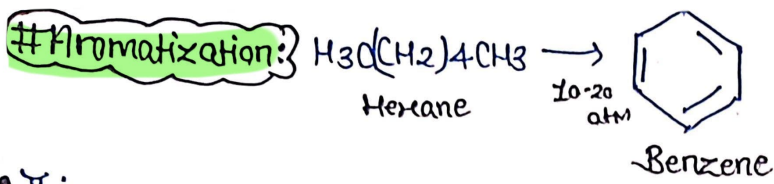 #Aromatization: H3C(CH2)4CH3 ⟶
Hexane
10-20
atm
Benzene